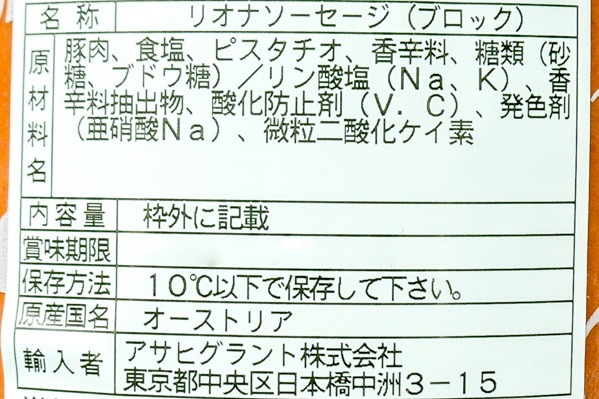 名称 リオナソーセージ（ブロック）
原材料名 豚肉、食塩、ピスタチオ、香辛料、糖類（砂
糖、ブドウ糖）／リン酸塩（Na、K）、香
辛料抽出物、酸化防止剤（V．C）、発色剤
（亜硝酸Na）、微粒二酸化ケイ素
内容量 枠外に記載
賞味期限
保存方法 10℃以下で保存して下さい。
原産国名 オーストリア
輸入者 アサヒグラント株式会社
東京都中央区日本橋中洲3－15